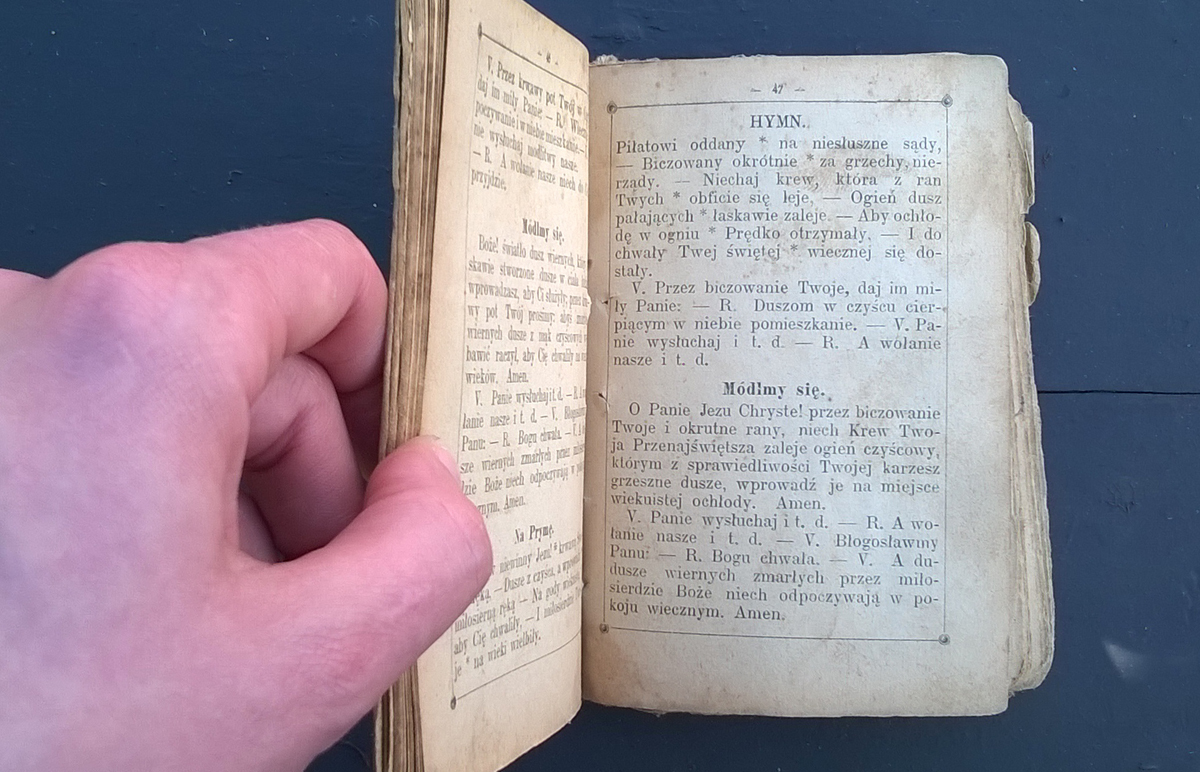 V. Przez krwawy pot Twój
daj im miły Panie: — R.
poczywanie i w niebie mieszkanie.—
nie wysłuchaj modlitwy nasze
— R. A wołanie nasze niech do
przyjdzie.
Módlmy się.
Boże! światło dusz wiernych,
skawie stworzone dusze w
wprowadzasz, aby Ci służyły; przez
wy pot Twój prosimy: abyś
wiernych dusze z mąk czyścowych
bawić raczył, aby Cię chwaliły na
wieków. Amen.
V. Panie wysłuchaj i t. d. —
łanie nasze i t. d. — V.
Panu: — R. Bogu chwała. —
sze wiernych zmarłych przez
dzie Boże niech odpoczywają w
Amen.
Na Prymę.
niewinny Jezu! *
— Dusze z czyśca, a
miłosierną ręką — Na gody
aby Cię chwaliły, — I
je * na wieki wielbiły.
— 47 —
HYMN.
Piłatowi oddany * na niesłuszne sądy,
— Biczowany okrótnie * za grzechy, nie-
rządy. — Niechaj krew, która z ran
Twych * obficie się leje, — Ogień dusz
pałających * łaskawie zaleje. — Aby ochło-
dę w ogniu * Prędko otrzymały, — I do
chwały Twej świętej * wiecznej się do-
stały.
V. Przez biczowanie Twoje, daj im mi-
ły Panie: — R. Duszom w czyścu cier-
piącym w niebie pomieszkanie. — V. Pa-
nie wysłuchaj i t. d — R. A wołanie
nasze i t. d.
Módlmy się.
O Panie Jezu Chryste! przez biczowanie
Twoje i okrutne rany, niech Krew Two-
ja Przenajświętsza zaleje ogień czyścowy,
którym z sprawiedliwości Twojej karzesz
grzeszne dusze, wprowadź je na miejsce
wiekuistej ochłody. Amen.
V. Panie wysłuchaj i t. d. — R. A wo-
łanie nasze i t. d. — V. Błogosławmy
Panu: — R. Bogu chwała. — V. A du-
dusze wiernych zmarłych przez miło-
sierdzie Boże niech odpoczywają w po-
koju wiecznym. Amen.